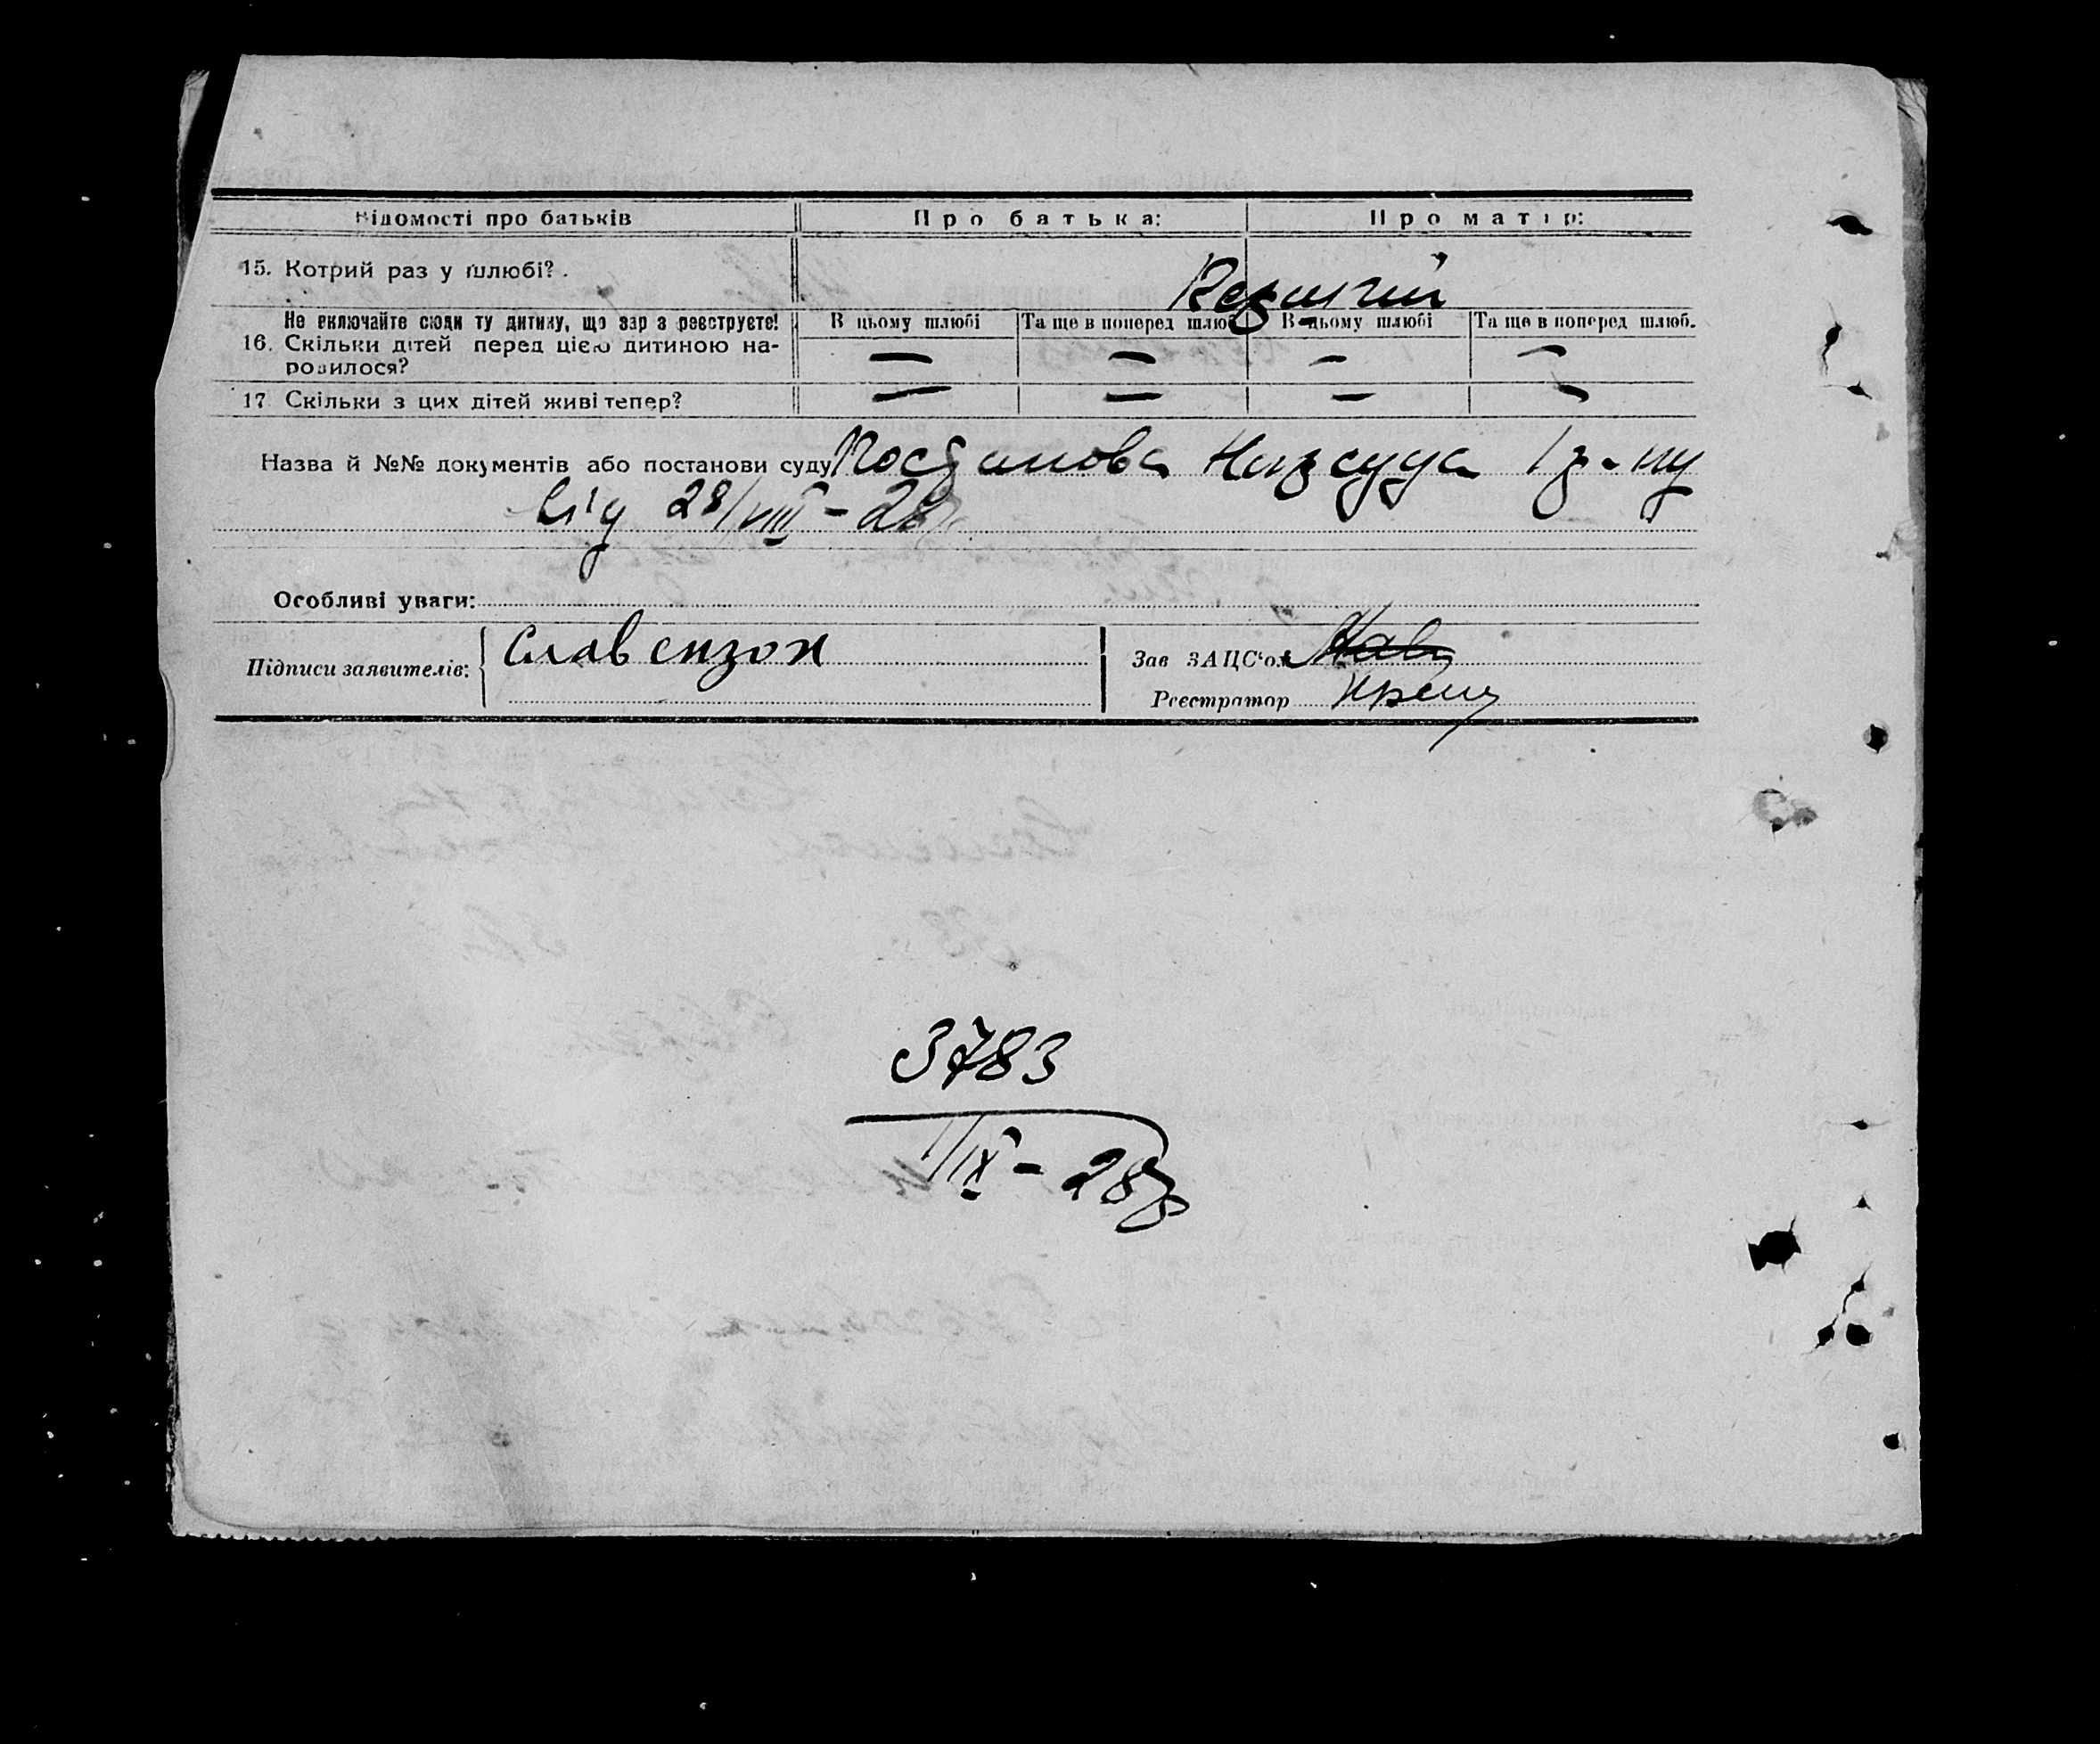 Відомості про батьків Про батька: Про матір:
15. Котрий раз у шлюбі?
Не включайте сюди ту дитину, що зар з реєструєте! В цьому шлюбі Та ще в поперед шлюб В цьому шлюбі Та ще в поперед шлюб.
16. Скільки дітей перед цією дитиною на- — — — —
родилося?
17 Скільки з цих дітей живі тепер? — — — —
Назва й №№ документів або постанови суду Постанова Нарсуда 1 р-ну
від 28/VIII - 28р.
Особливі уваги:
Підписи заявителів: Славензон Зав ЗАЦС'ом
Реєстратор
3783
1/IX - 28р